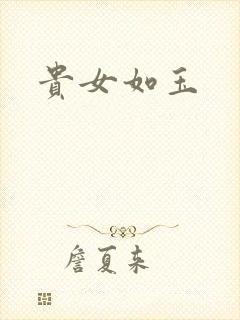 貴女如玉
詹夏来